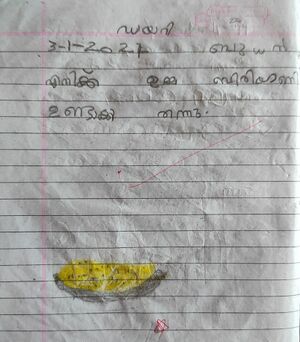 ഡയറി
3-1-2021 ബുധൻ
എനിക്ക് ഉമ്മ ബിരിയാണി
ഉണ്ടാക്കി തന്നു.